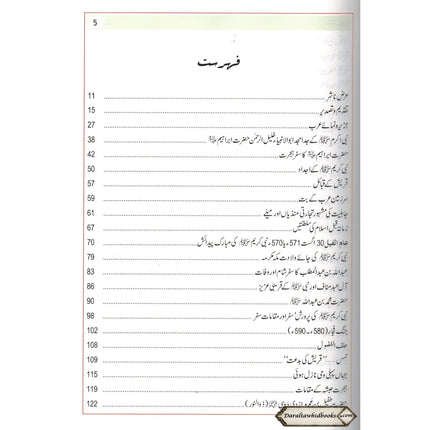 5
فہرست
عرض ناشر 11
تقدیم و تصدیر 15
جزیرہ نمائے عرب 27
نبی اکرم ﷺ کے جد امجد ابوالانبیاء خلیل الرحمٰن حضرت ابراہیم علیہ السلام 38
حضرت ابراہیم علیہ السلام کا سفر ہجرت 42
نبی کریم ﷺ کے اجداد 50
قریش کے قبائل 57
سرزمین عرب کے بت 59
جاہلیت کی مشہور تجارتی منڈیاں اور میلے 61
زمانۂ قبل اسلام کی سلطنتیں 67
عام الفیل 30 اگست 570ء یا 571ء نبی کریم ﷺ کی مبارک پیدائش 70
نبی کریم ﷺ کی جائے ولادت مکہ مکرمہ 79
عبداللہ بن عبدالمطلب کا سفر شام اور وفات 83
آل عبد مناف اور نبی ﷺ کے قریبی عزیز 86
حضرت محمد بن عبداللہ ﷺ 90
نبی کریم ﷺ کی پرورش، سفر اور مقامات سفر 98
جنگ فجار (580ء۔590ء) 102
حلف الفضول 108
حمس ... "قریش کی بدعت" 109
جہاں پہلی وحی نازل ہوئی 115
ہجرت حبشہ کے مقامات 119
حضرت طفیل بن عمرو (ذوالنور) 122
Daraltawhidbooks.com